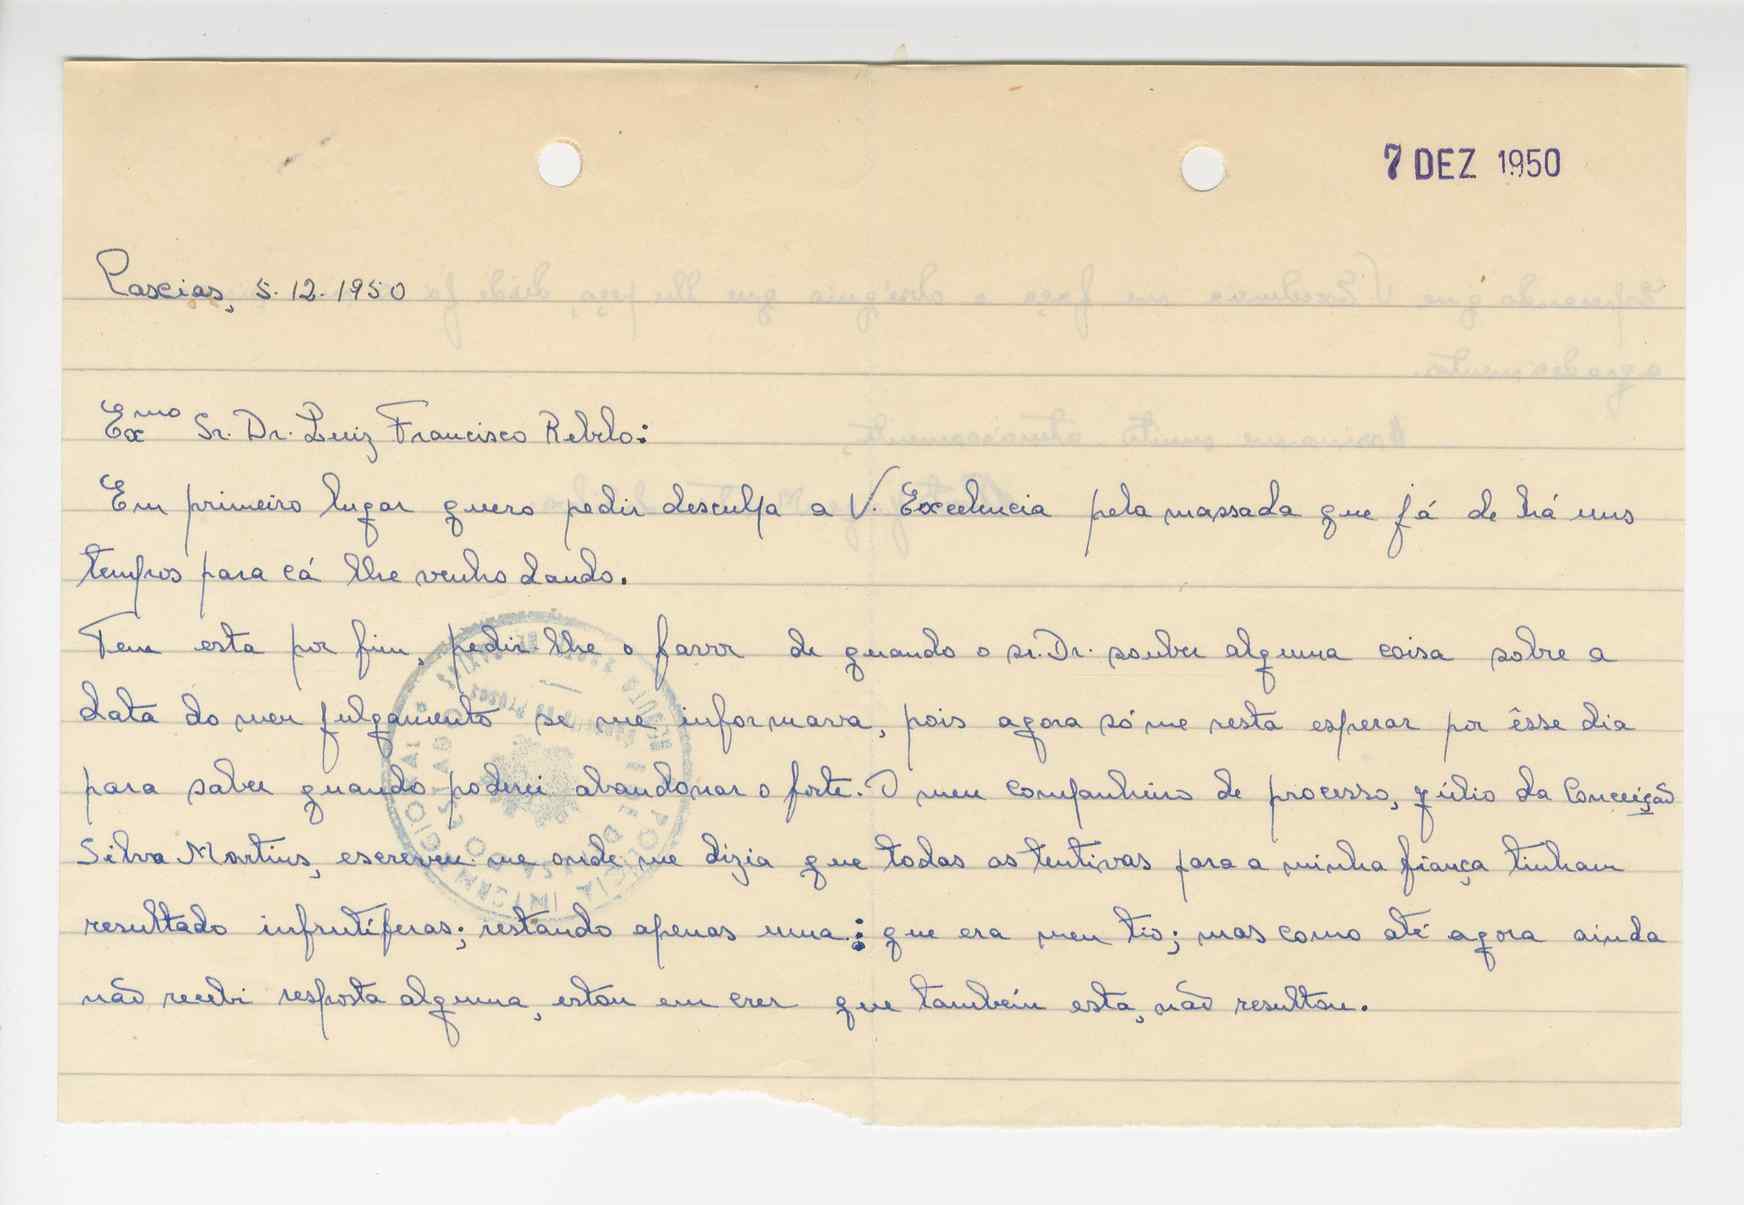 7 DEZ 1950
Caxias, 5.12.1950
Exmo Sr. Dr. Luiz Francisco Rebelo:
Em primeiro lugar quero pedir desculpa a V. Excelencia pela massada que já de há uns
tempos para cá lhe venho dando.
Tem esta por fim, pedir-lhe o favor de quando o sr. Dr. souber alguma coisa sobre a
data do meu julgamento se me informava, pois agora só me resta esperar por êsse dia
para saber quando poderei abandonar o forte. O meu companheiro de processo, Júlio da Conceição
Silva Martins, escreveu-me onde me dizia que todas as tentivas para a minha fiança tinham
resultado infrutíferas; restando apenas uma: que era meu tio; mas como até agora ainda
não recebi resposta alguma, estou em crer que também esta, não resultou.